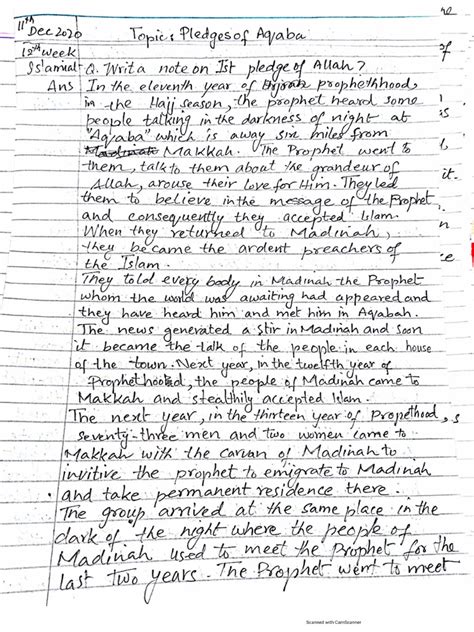 11th Dec 2020 Topic: Pledges of Aqaba
12th week
Islamiat Q. Writa note on Ist pledge of Allah?
Ans In the eleventh year of prophethhood,
in the Hajj season, the prophet heard some
people talking in the darkness of night at
"Aqaba" which is away six miles from
Madinate Makkah. The Prophet went to
them, talk to them about the grandeur of
Allah, arouse their love for Him. They led
them to believe in the message of the Prophet
and consequently they accepted Islam.
When they returned to Madinah,
they became the ardent preachers of
the Islam.
They told every body in Madinah the Prophet
whom the world was awaiting had appeared and
they have heard him and met him in Aqabah.
The news generated a stir in Madinah and soon
it became the talk of the people in each house
of the town. Next year, in the twelfth year of
Prophethooted, the people of Madinah came to
Makkah and stealthily accepted Islam.
The next year, in the thirteen year of Propethood,
seventy-three men and two women came to
Makkah with the carvan of Madinah to
invitive the prophet to emigrate to Madinah
and take permanent residence there.
The group arrived at the same place in the
dark of the night where the people of
Madinah used to meet the Prophet for the
last two years. The Prophet went to meet
Scanned with CamScanner